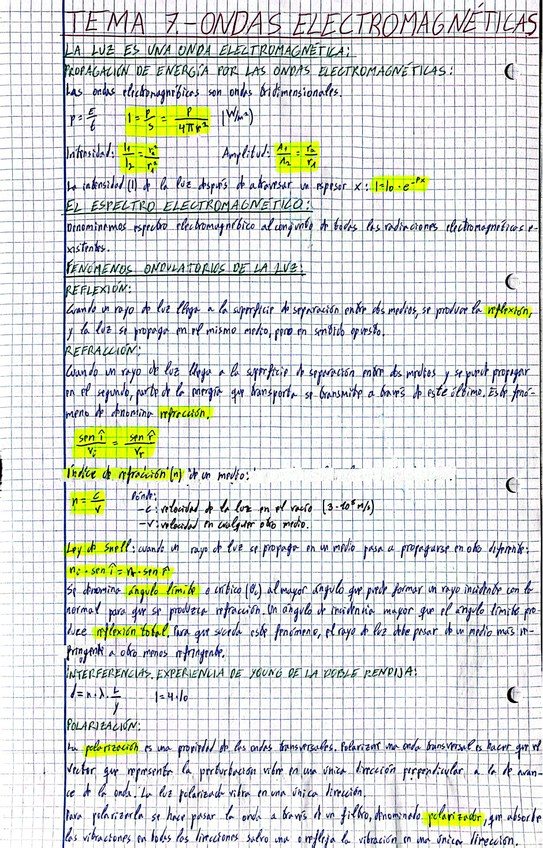 TEMA 7.-ONDAS ELECTROMAGNÉTICAS
LA LUZ ES UNA ONDA ELECTROMAGNÉTICA:
PROPAGACIÓN DE ENERGÍA POR LAS ONDAS ELECTROMAGNÉTICAS:
Las ondas electromagnéticas son ondas tridimensionales.
P = E/t I = P/S = P/4πr² (W/m²)
Intensidad: I₁/I₂ = r₂²/r₁² Amplitud: A₁/A₂ = r₂/r₁
La intensidad (I) de la luz después de atravesar un espesor x: I=I₀·e^-βx
EL ESPECTRO ELECTROMAGNÉTICO:
Denominamos espectro electromagnético al conjunto de todas las radiaciones electromagnéticas e-
xistentes.
FENÓMENOS ONDULATORIOS DE LA LUZ:
REFLEXIÓN:
Cuando un rayo de luz llega a la superficie de separación entre dos medios, se produce la reflexión,
y la luz se propaga en el mismo medio, pero en sentido opuesto.
REFRACCIÓN:
Cuando un rayo de luz llega a la superficie de separación entre dos medios y se puede propagar
en el segundo, parte de la energía que transporta se transmite a través de este último. Este fenó-
meno de denomina refracción.
sen î/vᵢ = sen r̂/vᵣ
Índice de refracción (n) de un medio:
n = c/v Dónde:
-c: velocidad de la luz en el vacío (3·10⁸ m/s)
-v: velocidad en cualquier otro medio.
Ley de Snell: cuando un rayo de luz se propaga en un medio pasa a propagarse en otro diferente:
nᵢ·sen î = nᵣ·sen r̂
Se denomina ángulo límite o crítico (θc) al mayor ángulo que puede formar un rayo incidente con la
normal para que se produzca refracción. Un ángulo de incidencia mayor que el ángulo límite pro-
duce reflexión total. Para que suceda este fenómeno, el rayo de luz debe pasar de un medio más re-
fringente a otro menos refringente.
INTERFERENCIAS. EXPERIENCIA DE YOUNG DE LA DOBLE RENDIJA:
d=n·λ·L/y I=4·I₀
POLARIZACIÓN:
La polarización es una propiedad de las ondas transversales. Polarizar una onda transversal es hacer que el
vector que representa la perturbación vibre en una única dirección perpendicular, a la de avan-
ce de la onda. La luz polarizada vibra en una única dirección.
Para polarizarla se hace pasar la onda a través de un filtro, denominado polarizador, que absorbe
las vibraciones en todas las direcciones salvo una o refleja la vibración en una única dirección.